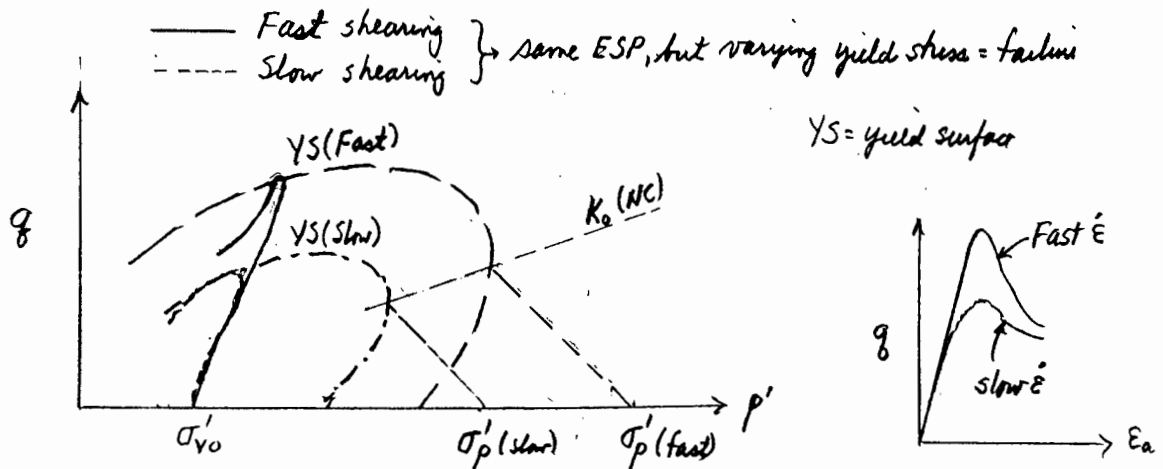 Fast shearing
Slow shearing
same ESP, but varying yield stress = failure
YS = yield surface
YS (Fast)
YS (Slow)
K₀ (NC)
q
p'
σ'vo
σ'p (slow)
σ'p (fast)
Fast ε̇
slow ε̇
q
εa